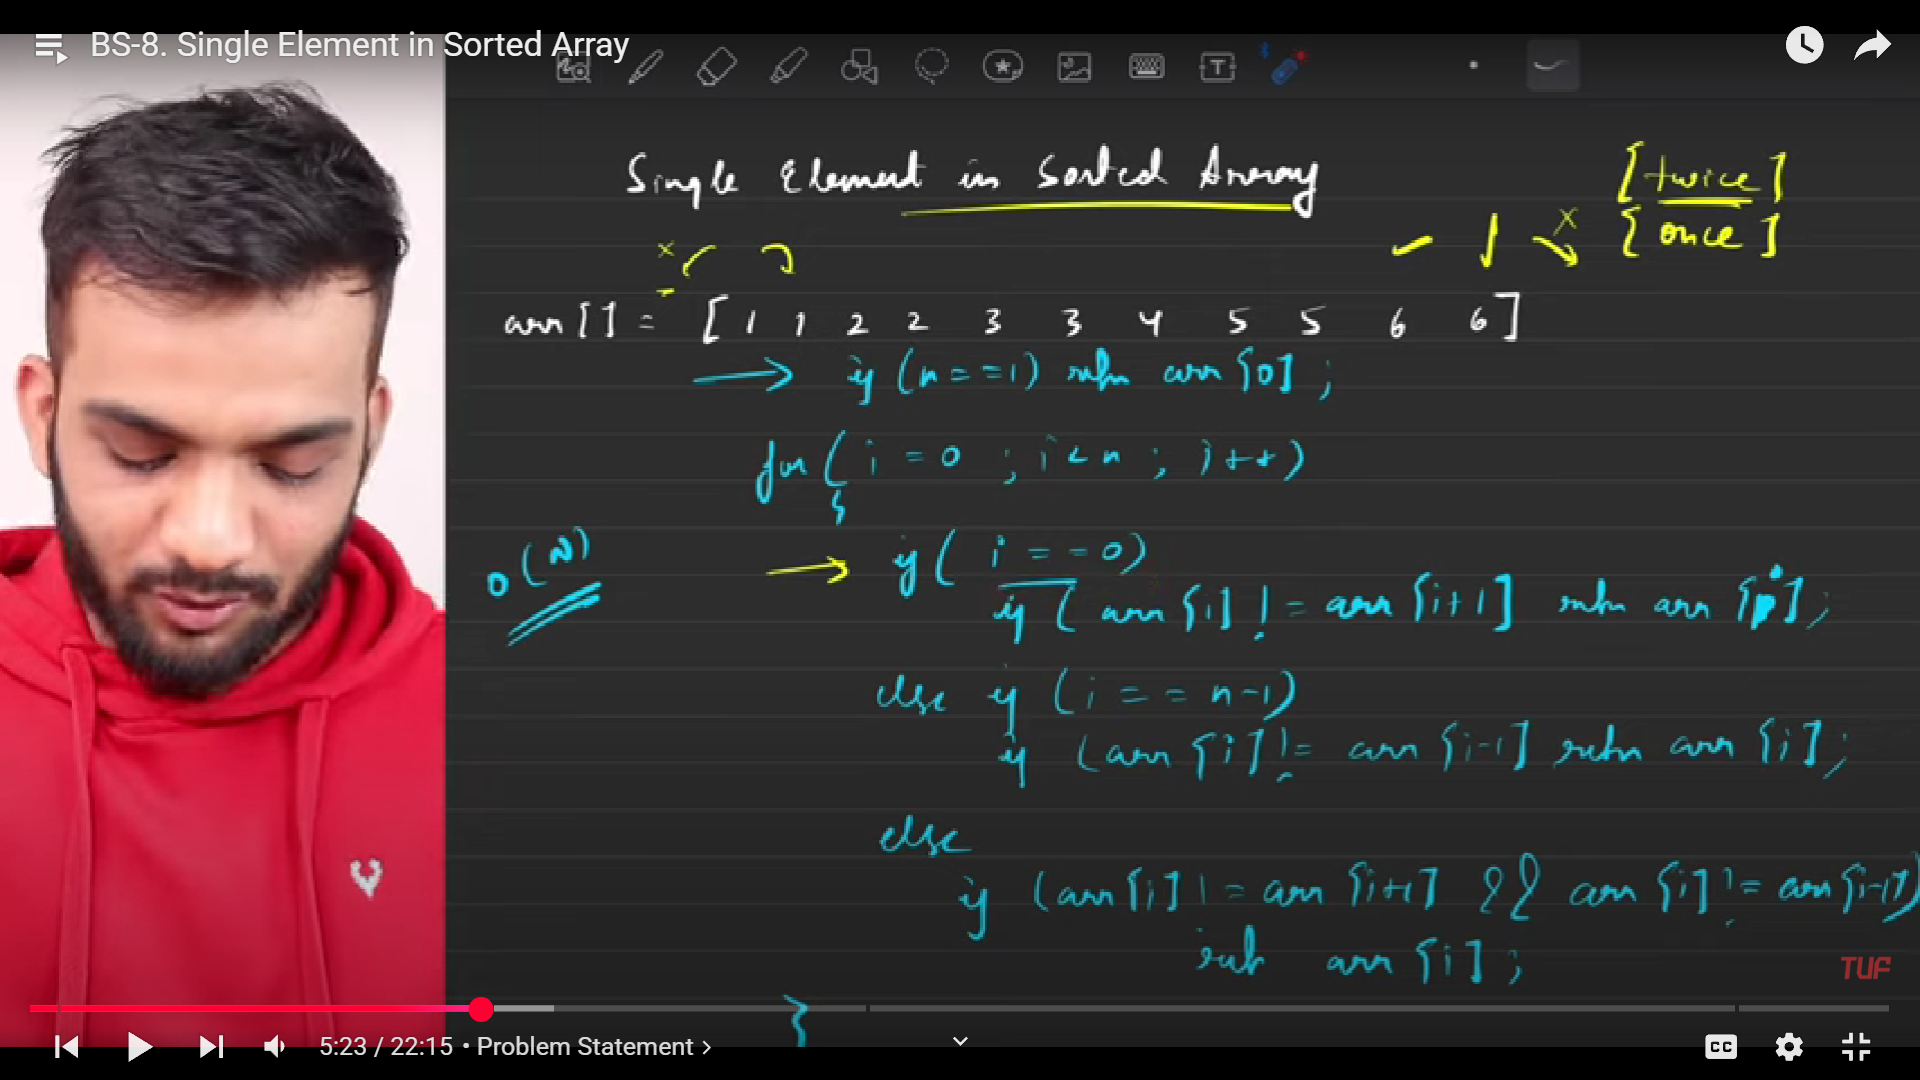 BS-8. Single Element in Sorted Array
Single Element in Sorted Array
[twice]
[once]
arr[] = [1 1 2 2 3 3 4 5 5 6 6]
if (n==1) return arr[0];
for (i = 0 ; i < n ; i++)
{
O(N)
if ( i == 0)
if ( arr[i] != arr[i+1] return arr[i];
else if (i == n-1)
if (arr[i] != arr[i-1] return arr[i];
else
if (arr[i] != arr[i+1] && arr[i] != arr[i-1])
return arr[i];
}
TUF
5:23 / 22:15 • Problem Statement ›
CC